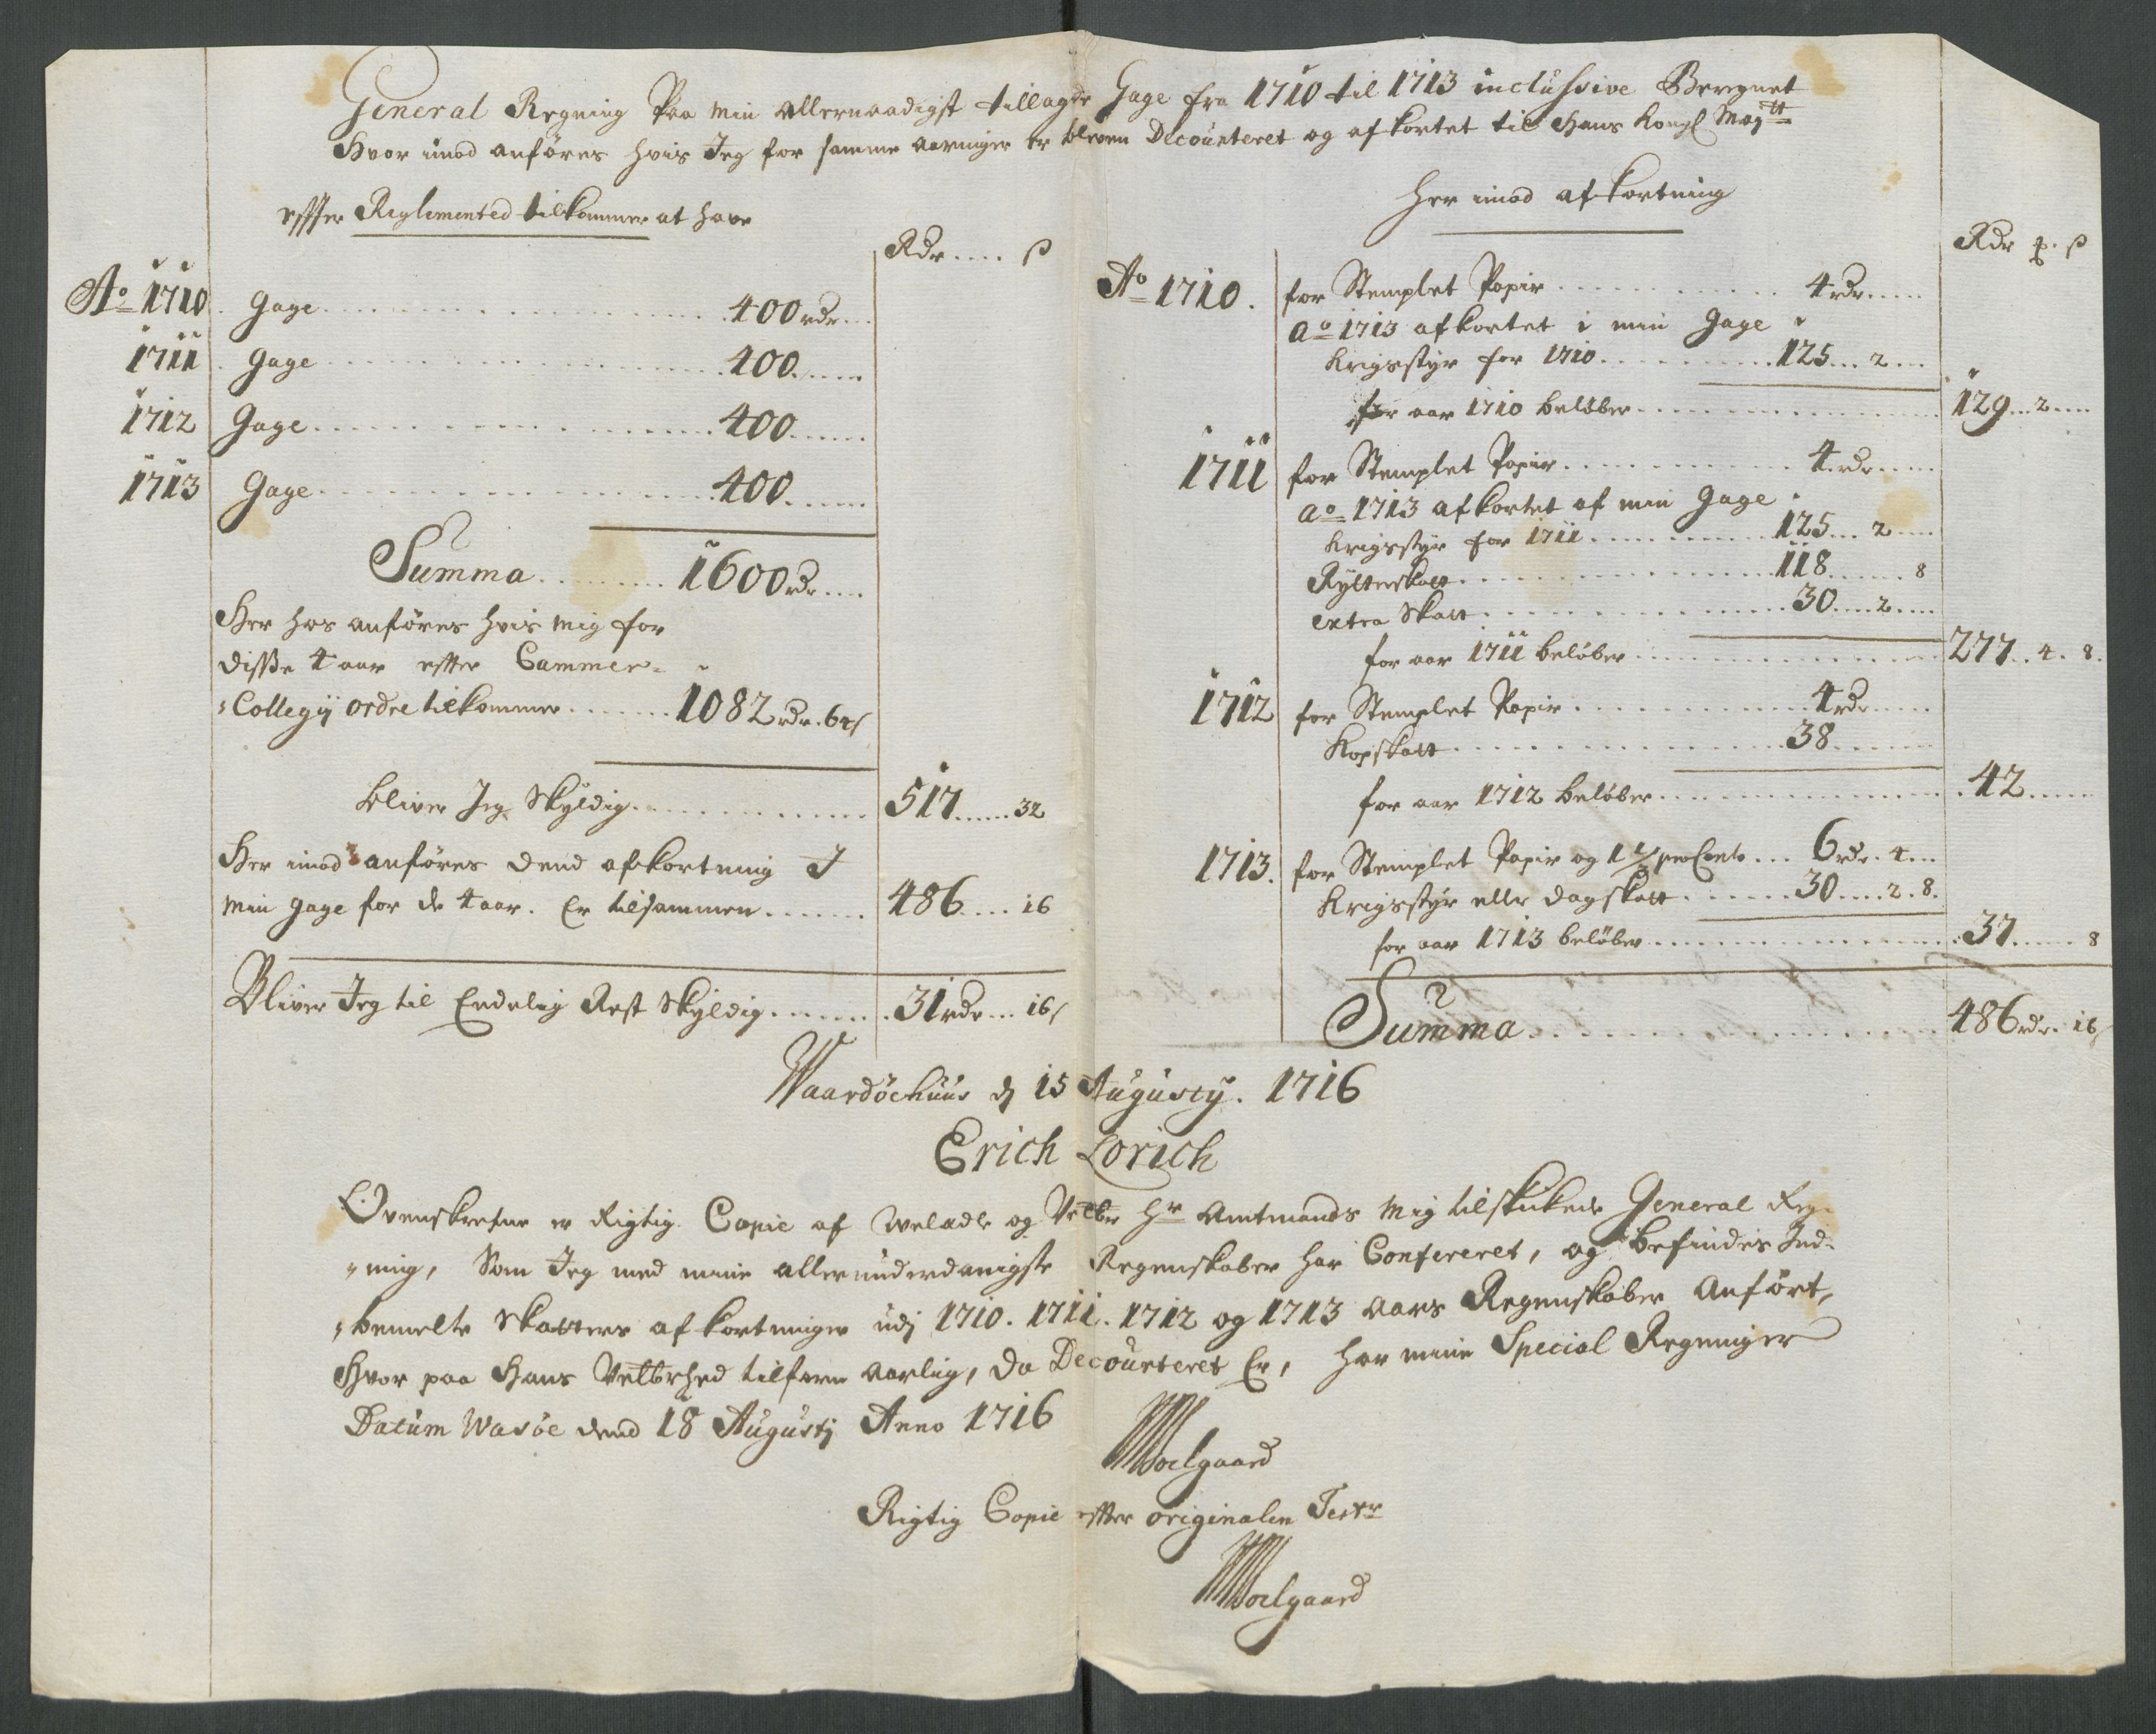 General Regning Paa min allernaadigst tillagde Gage fra 1710 til 1713 inclussive Beregnet
Hvor imod anföres hvis Jeg for samme aaringer er bleven Decourteret og afkortet til Hans Kongl Maytt
effter Reglemented tilkommer at have
Rdr .... ß
Ao 1710. Gage ........ 400 rdr...
1711. Gage ........ 400......
1712 Gage ........ 400......
1713 Gage ........ 400......
Summa ........ 1600 rdr....
Her hos anföres hvis mig for
disse 4 aar effter Cammer-
Collegij ordre tilkommer ....... 1082 rdr. 64 ß
bliver Jeg Skyldig ........ 517...... 32
Her imod anföres dend afkortning J
min gage for de 4 aar. Er tilsammen ....... 486.... 16
Bliver Jeg til Endelig Rest Skyldig ....... 31 rdr... 16 ß
Her imod afkortning
Rdr ß
Ao 1710. for Stemplet Papir ........ 4 rdr.....
ao 1713 afkortet i min Gage
Krigsstyr for 1710 ........ 125... 2...
for aar 1710 belöber ........ 129... 2....
1711 for Stemplet Papir ........ 4 rdr.....
ao 1713 afkortet af min Gage
Krigsstyr for 1711 ........ 125... 2....
Rytterskatt ........ 118...... 8
extra Skatt ........ 30.... 2....
for aar 1711 belöber ........ 277.. 4. 8.
1712 for Stemplet Papir ........ 4 rdr....
Kopskatt ........ 38......
for aar 1712 belöber ........ 42.....
1713. for Stemplet Papir og 1 1/2 pro Cento ... 6 rdr. 4...
Krigsstyr eller dagskatt ....... 30.... 2. 8.
for aar 1713 belöber ........ 37..... 8
Summa ........ 486 rdr. 16 ß
Waardöehuus d 15 Augusty. 1716
Erich Lorich
Ovenskrefne er Rigtig Copie af Weladle og Velbr Hr Amtmands mig tilskikede General Reg-
ning, Som Jeg med mine allerunderdanigste Regenskaber har Confereret, og befindes Ind-
bemelte Skatters afkortninger udj 1710. 1711. 1712 og 1713 aars Regenskaber Anfört,
Hvor paa Hans Velbrhed tilforn aarlig, da Decourteret Er, har mine Special Regninger
Datum Wasöe dend 18 Augustj Anno 1716
Woelgaard
Rigtig Copie effter originalen Testr
Woelgaard